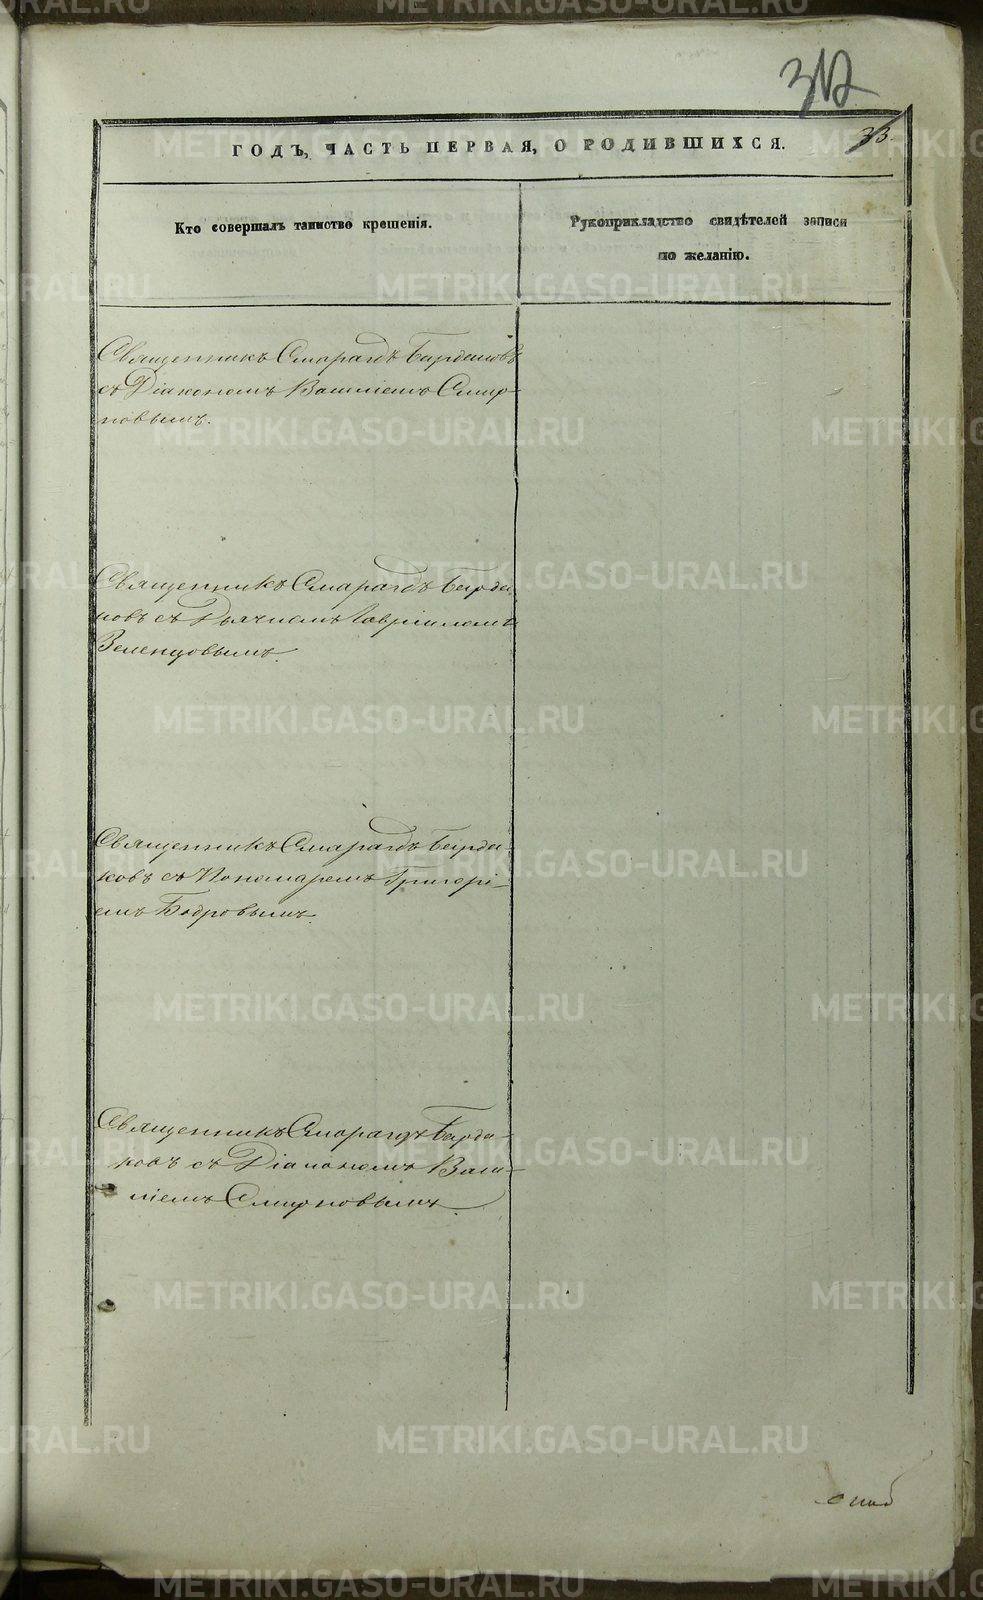 312
33.
ГОДЪ, ЧАСТЬ ПЕРВАЯ, О РОДИВШИХСЯ.
Кто совершалъ таинство крещенія.
Рукоприкладство свидѣтелей записи
по желанію.
Священникъ Смарагдъ Бардаковъ
съ Діакономъ Василіемъ Смир-
новымъ.
Священникъ Смарагдъ Барда
ковъ съ Дьячкомъ Гавріиломъ
Зеленцовымъ.
Священникъ Смарагдъ Барда-
ковъ съ Пономаремъ Григорі-
емъ Бобровымъ.
Священникъ Смарагдъ Барда-
ковъ съ Діакономъ Васи-
ліемъ Смирновымъ.
METRIKI.GASO-URAL.RU